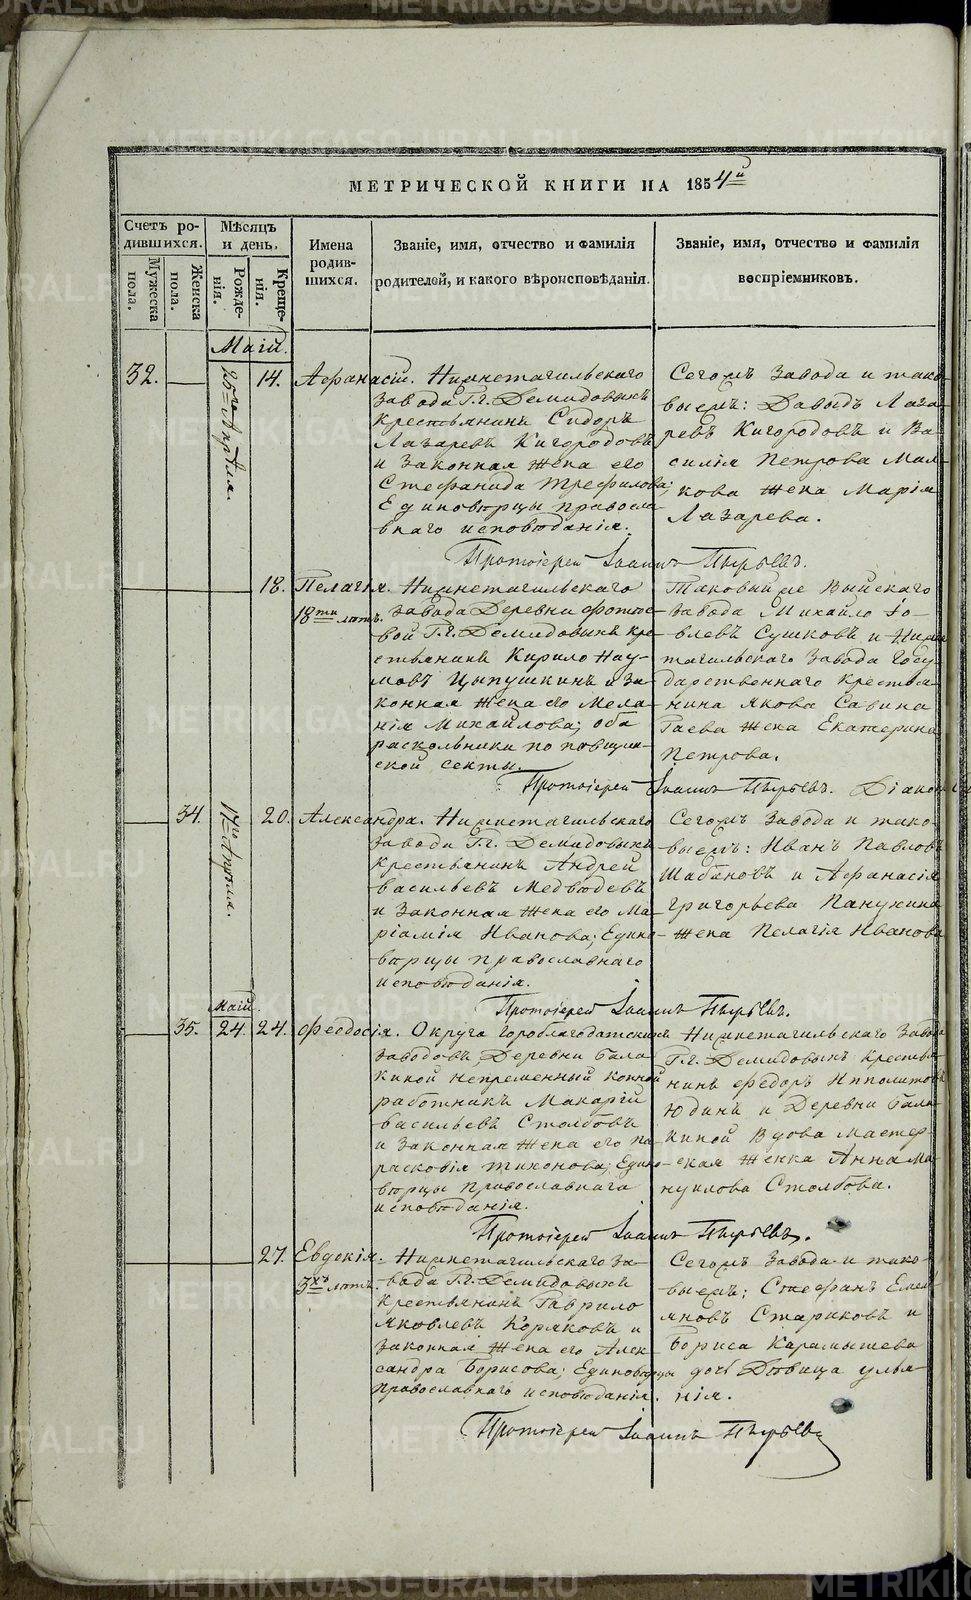 МЕТРИЧЕСКОЙ КНИГИ НА 1854й
Счетъ родившихся.
Мужеска пола.
Женска пола.
Мѣсяцъ и день.
Рожденія.
Крещенія.
Имена родившихся.
Званіе, имя, отчество и фамилія родителей, и какого вѣроисповѣданія.
Званіе, имя, отчество и фамилія воспріемниковъ.
Маій.
32.
25го Апрѣля.
14.
Афанасій.
Нижнетагильскаго
завода Г.г. Демидовыхъ
крестьянинъ Сидоръ
Лазаревъ Кигородовъ
и законная жена его
Стефанида Трефилова;
Единовѣрцы православнаго исповѣданія.
Сегожъ завода и таковыежъ: Давыдъ Лазаревъ Кигородовъ и Василія Петрова Малкова жена Марія
Лазарева.
Протоіерей Іоаннъ Пырьевъ.
18.
Пелагія.
18ти лѣтъ.
Нижнетагильскаго
завода Деревни Фотѣевой Г.г. Демидовыхъ крестьянинъ Кирило Наумовъ Цыпушкинъ и законная жена его Меланія Михайлова; оба
раскольники поповщинской секты.
Таковый же Выйскаго
завода Михайло Іовлевъ Сушковъ и Нижнетагильскаго завода Государственнаго крестьянина Якова Савина
Гаева жена Екатерина
Петрова.
Протоіерей Іоаннъ Пырьевъ. Діаконъ
34.
17го Апрѣля.
20.
Александра.
Нижнетагильскаго
завода Г.г. Демидовыхъ
крестьянинъ Андрей
Васильевъ Медвѣдевъ
и законная жена его Маріамія Иванова; Единовѣрцы православнаго
исповѣданія.
Сегожъ завода и таковыежъ: Иванъ Павловъ
Шабановъ и Афанасія
Григорьева Панухина
жена Пелагія Иванова
Протоіерей Іоаннъ Пырьевъ.
Маій.
35.
24.
24.
Феодосія.
Округа Гороблагодатскихъ
заводовъ, Деревни Балакиной непременный конной
работникъ Макарій
Васильевъ Столбовъ
и законная жена его Парасковія Тихонова; Единовѣрцы православнаго
исповѣданія.
Нижнетагильскаго завода
Г.г. Демидовыхъ крестьянинъ Федоръ Ипполитовъ
Юдинъ и Деревни Балакиной вдова мастерская женка Анна Мануилова Столбова.
Протоіерей Іоаннъ Пырьевъ.
27.
Евдокія.
3хъ лѣтъ.
Нижнетагильскаго завода Г.г. Демидовыхъ
крестьянинъ Гаврило
Яковлевъ Коряковъ и
законная жена его Александра Борисова; Единоверцы
православнаго исповѣданія.
Сегожъ завода и таковыежъ: Стефанъ Емельяновъ Стариковъ и
Бориса Карамышева
дочь Дѣвица Ульянія.
Протоіерей Іоаннъ Пырьевъ